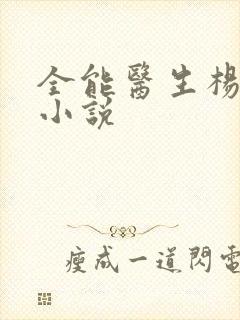 全能醫生楊
小說
瘦成一道閃電